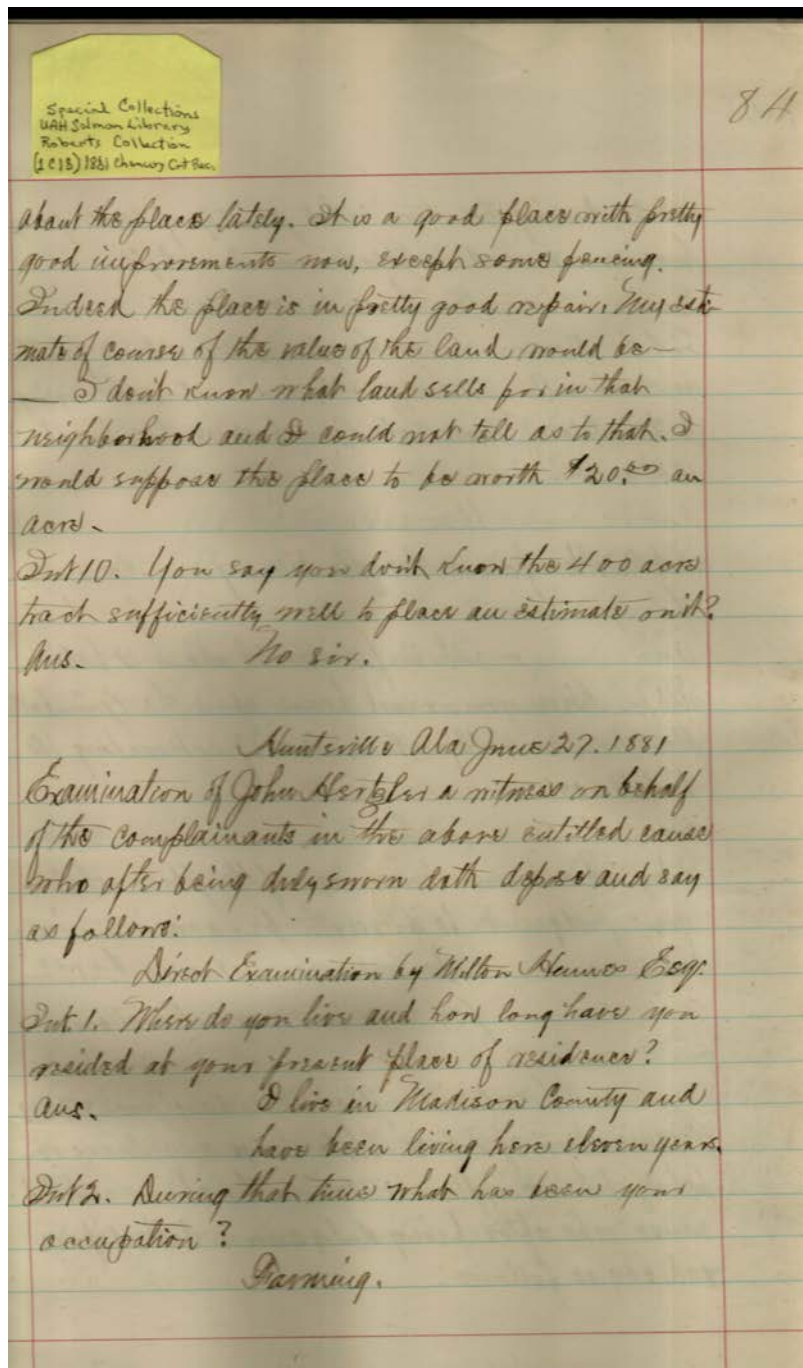 Special Collections
UAH Salmon Library
Roberts Collection
(1C1B) 1881 Chancery Crt Rec.
84
about the place lately. It is a good place with pretty
good improvements now, except some fencing.
Indeed the place is in pretty good repair. My esti-
mate of course of the value of the land would be—
— I don't know what land sells for in that
neighborhood and I could not tell as to that. I
would suppose the place to be worth $20.00 an
acre.
Int 10. You say you don't know the 400 acre
tract sufficiently well to place an estimate on it?
Ans. No sir.
Huntsville Ala June 27. 1881
Examination of John Hertzler a witness on behalf
of the complainants in the above entitled cause
who after being duly sworn doth depose and say
as follows:
Direct Examination by Milton Humes Esqr.
Int. 1. Where do you live and how long have you
resided at your present place of residence?
Ans. I live in Madison County and
have been living here eleven years.
Int 2. During that time what has been your
occupation?
Farming.